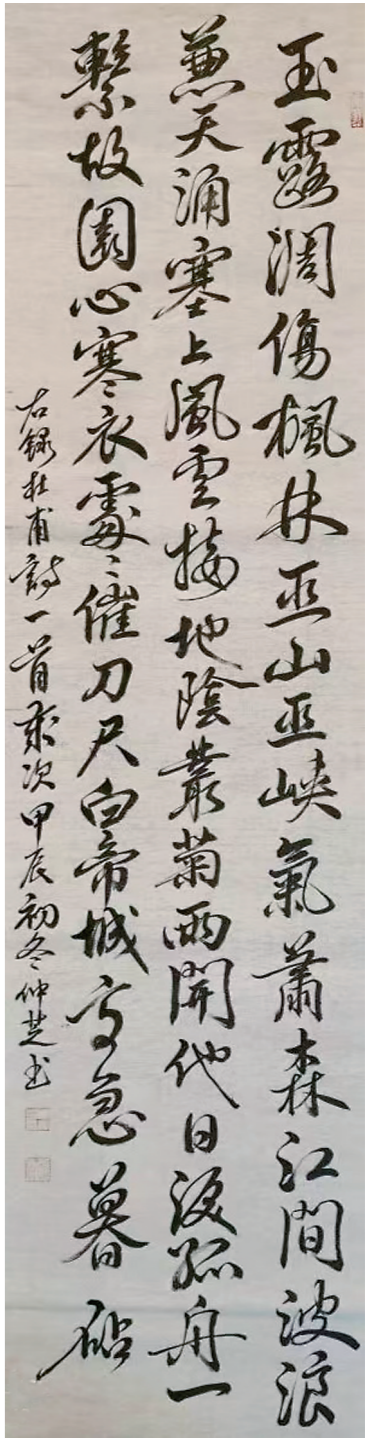 玉露凋傷楓林巫山巫峽氣蕭森江間波浪
兼天涌塞上風雲接地陰叢菊兩開他日淚孤舟一
繫故園心寒衣處〻催刀尺白帝城高急暮砧
右錄杜甫詩一首歲次甲辰初冬仲芝书